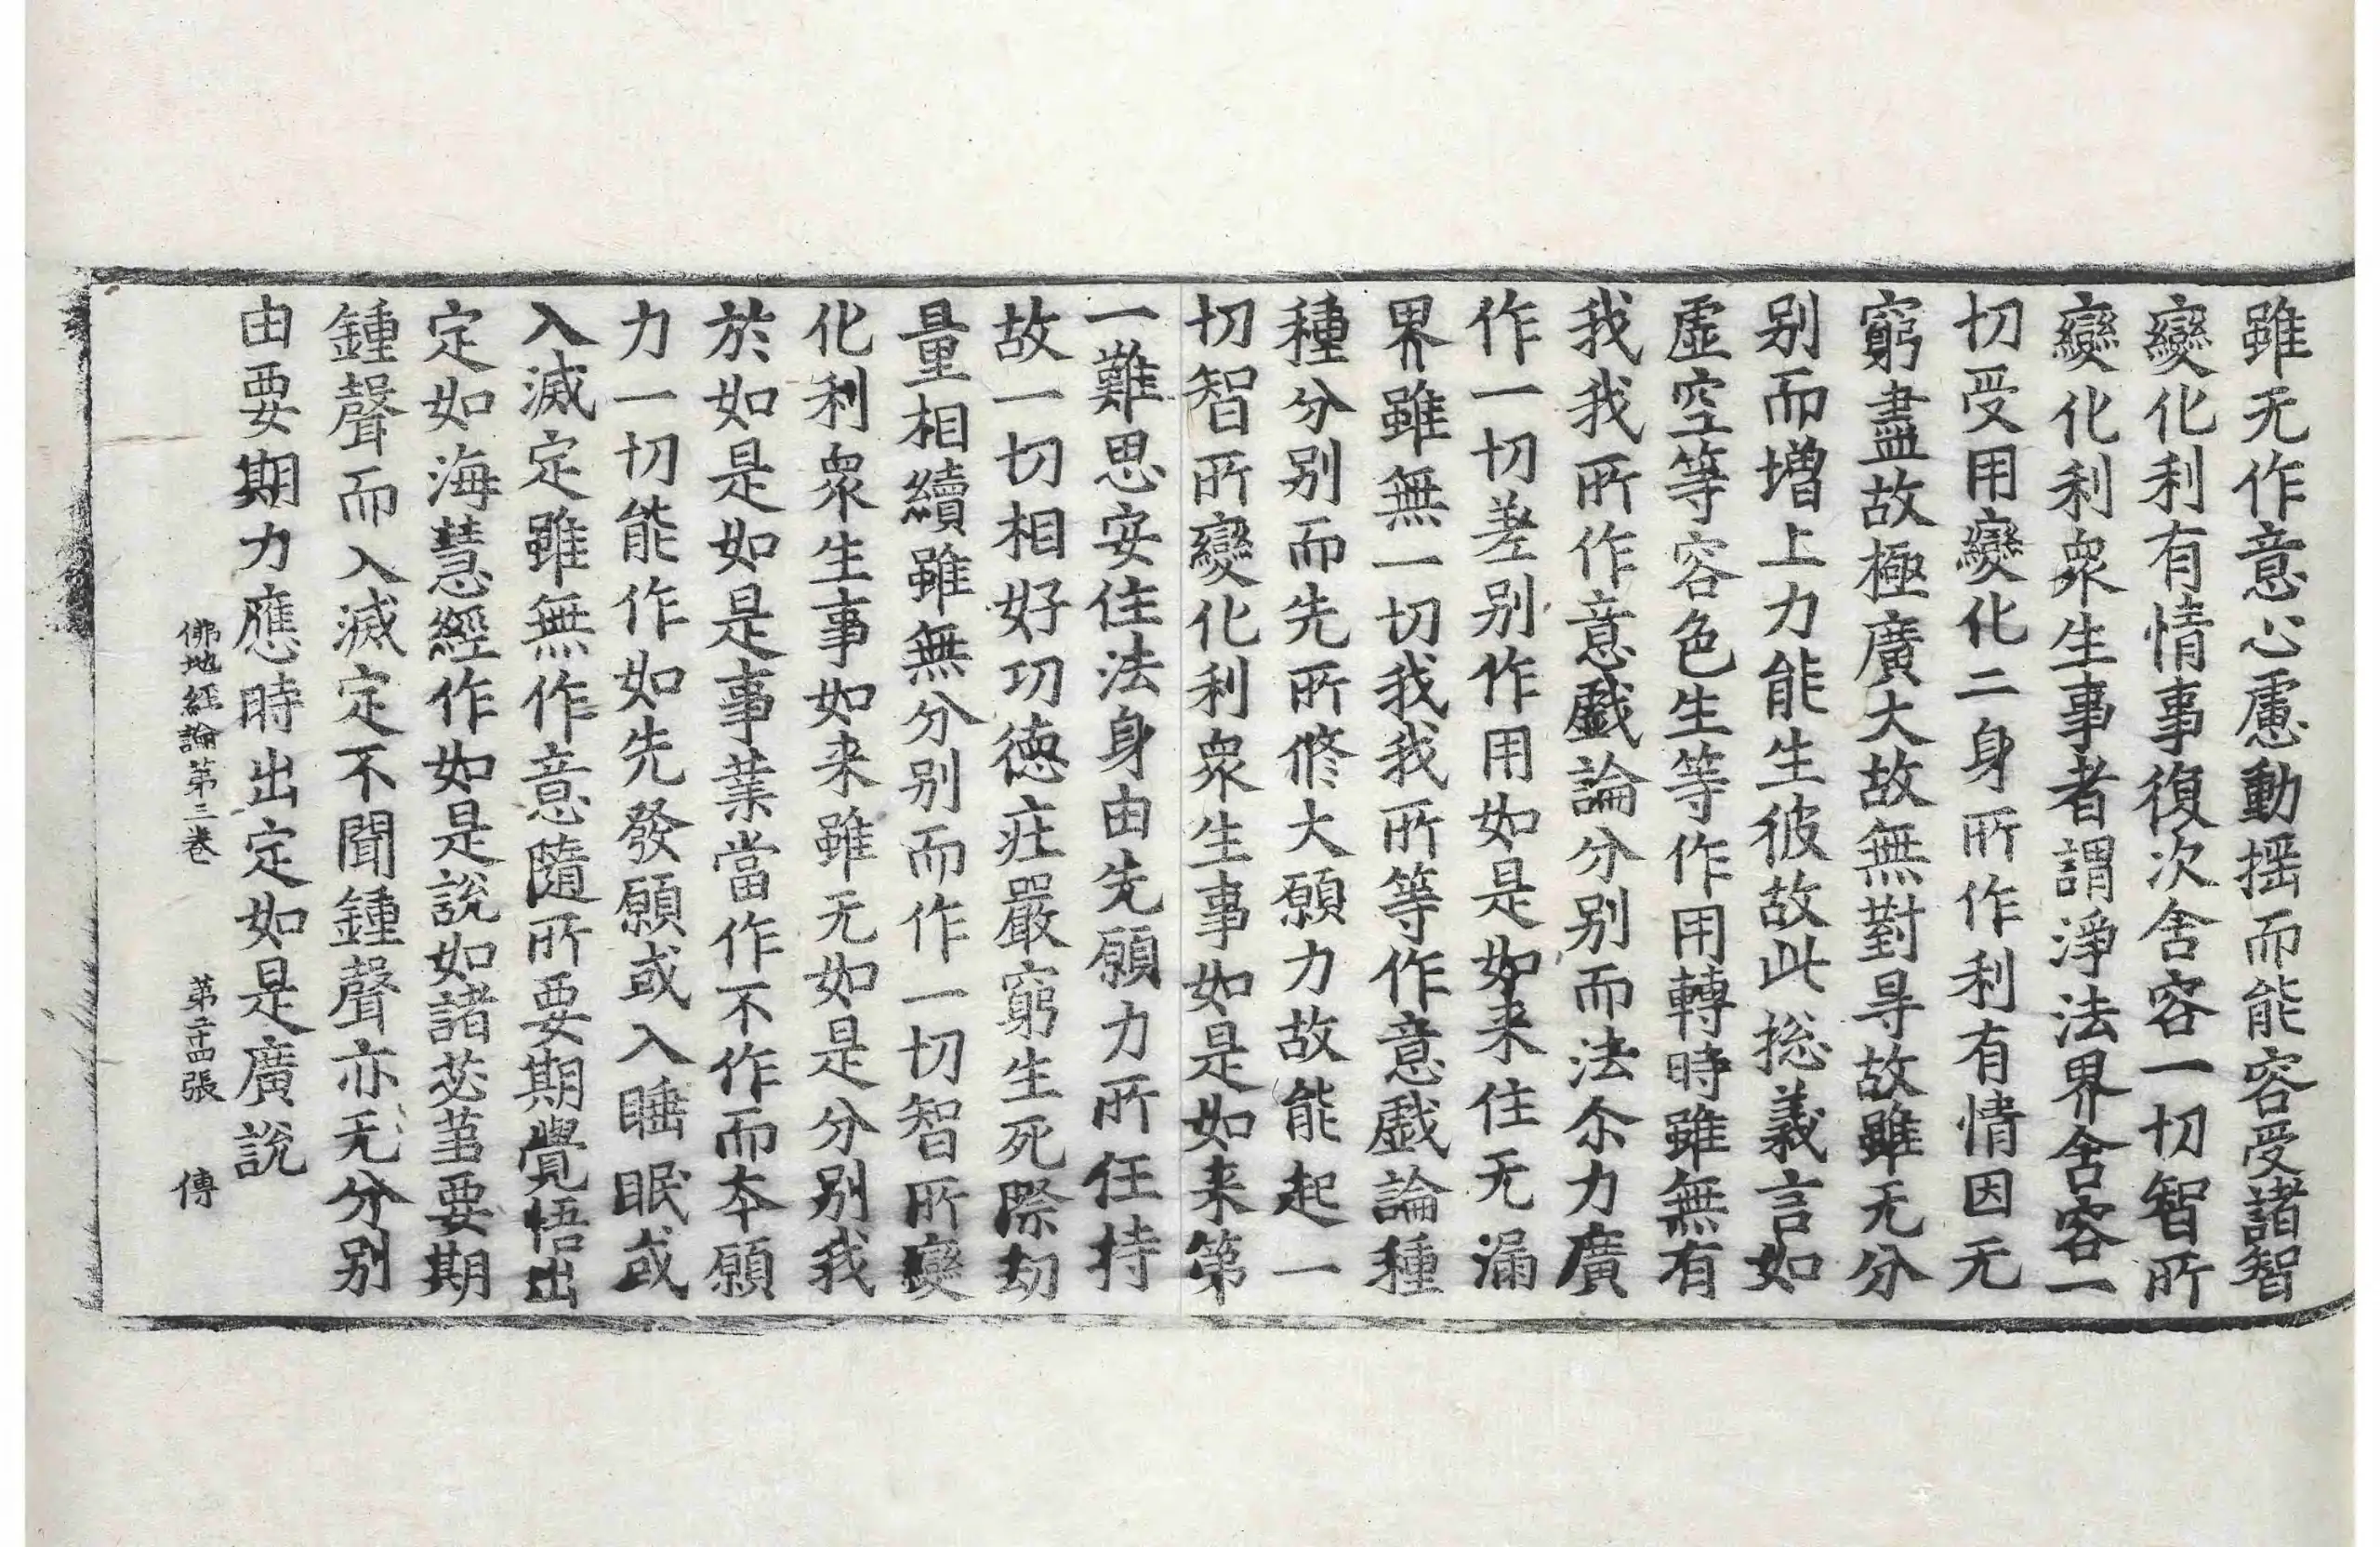 雖无作意心慮動揺而能容受諸智
變化利有情事復次含容一切智所
變化利衆生事者謂淨法界含容一
切受用變化二身所作利有情因无
窮盡故極廣大故無對㝵故雖无分
别而增上力能生彼故此捴義言如
虛空等容色生等作用轉時雖無有
我我所作意戲論分别而法尒力廣
作一切差别作用如是如来住无漏
界雖無一切我我所等作意戲論種
種分别而先所修大願力故能起一
切智所變化利衆生事如是如来第
一難思安住法身由先願力所任持
故一切相好功德庄嚴窮生死際劫
量相續雖無分别而作一切智所變
化利衆生事如来雖无如是分别我
於如是如是事業當作不作而本願
力一切能作如先發願或入睡眠或
入滅定雖無作意隨所要期覺悟出
定如海慧經作如是說如諸苾蒭要期
鍾聲而入滅定不聞鍾聲亦无分别
由要期力應時出定如是廣說
佛地経論第三卷 第二十四張 傳